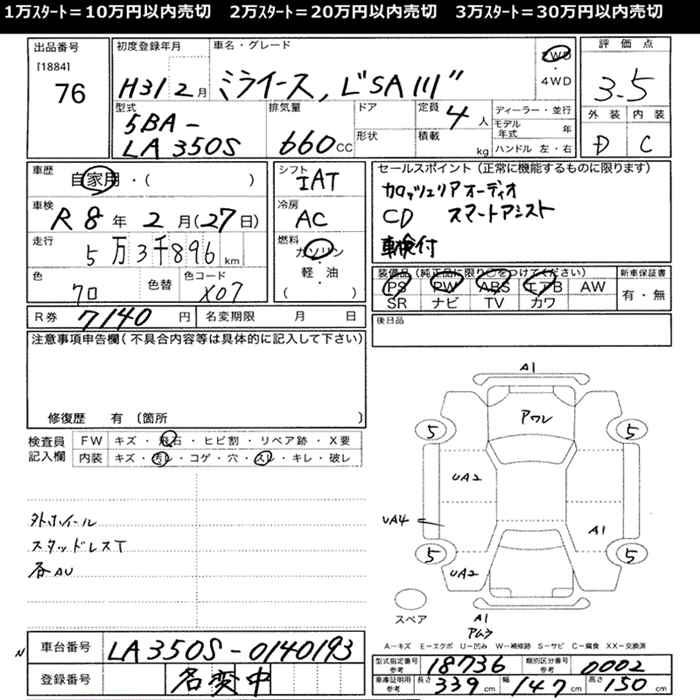 1万ｽﾀｰﾄ＝10万円以内売切　2万ｽﾀｰﾄ＝20万円以内売切　3万ｽﾀｰﾄ＝30万円以内売切
出品番号
[1884]
76
初度登録年月
H31 2月
車名・グレード
ミライース, L"SAⅢ"
2WD
・
4WD
評価点
3.5
外装 内装
D C
型式
5BA-
LA350S
排気量
660cc
ドア
形状
定員
4人
積載
kg
ディーラー・並行
モデル年式 年
ハンドル 左・右
車歴
自家用・( )
車検
R8年2月(27日)
走行
5万3千896km
色
70
色替
色コード
X07
シフト
IAT
冷房
AC
燃料
ガソリン
・
軽・油
( )
セールスポイント(正常に機能するものに限ります)
カロッツェリアオーディオ
CD スマートアシスト
車検付
装備品(純正品に限り○をつけてください)
PS PW ABS エアB AW
SR ナビ TV カワ
新車保証書
有・無
R券 7140円
名変期限 月 日
後日品
注意事項申告欄(不具合内容等は具体的に記入して下さい)
修復歴 有 (箇所 )
検査員
記入欄
FW キズ・飛石・ヒビ割・リペア跡・X要
内装 キズ・汚レ・コゲ・穴・スレ・キレ・破レ
外ホイール
スタッドレスT
各AU
A1
アワレ
5 5
UA2
UA4
A1
5 5
UA2
スペア
A1
A-キズ E-エクボ U-凹み W-補修跡 S-サビ C-腐食 XX-交換済
N
車台番号
LA350S-0140193
登録番号
名変中
型式指定番号
参考
18736
類別区分番号
参考
0002
車庫証明用
参考
長さ 339cm 幅 147cm 高さ 150cm